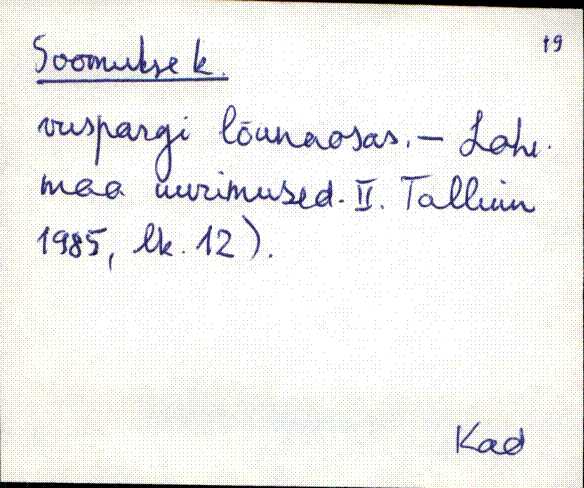 19
Soomukse k.
vuspargi lõunaosas. - Lahe-
maa uurimused. II. Tallinn
1985, lk. 12).
Kad